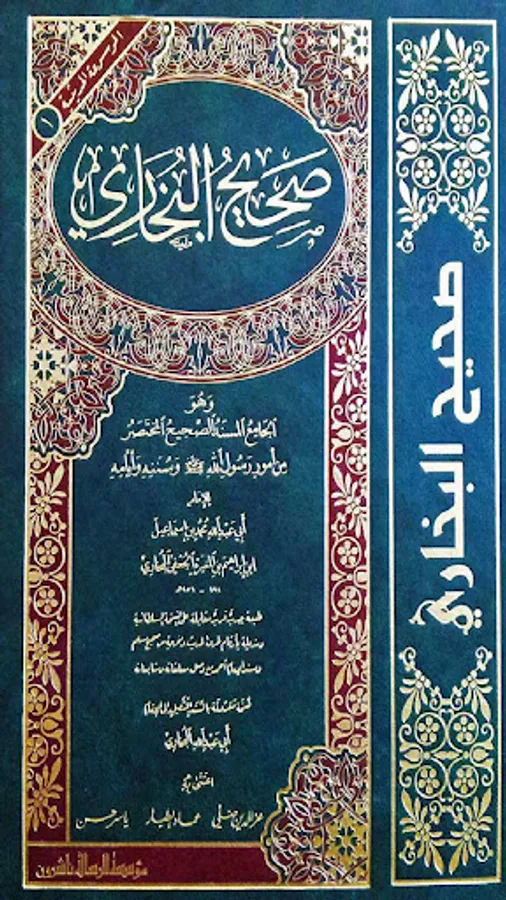 الموسوعة الحديثية
١
صَحِيحُ البُخَارِي
وَهُوَ
الجَامِعُ المُسْنَدُ الصَّحِيحُ المُخْتَصَرُ
مِنْ أُمُورِ رَسُولِ اللهِ ﷺ وَسُنَنِهِ وَأَيَّامِهِ
للإمام
أبي عبد الله محمد بن إسماعيل
ابن إبراهيم بن المغيرة الجعفي البخاري
طبعة مقابلة على السلطانية
أبي عبد الله البخاري
اعتنى به
عز الدين ضلي عماد الطيار ياسر حسن
مؤسسة الرسالة ناشرون
صحيح البخاري